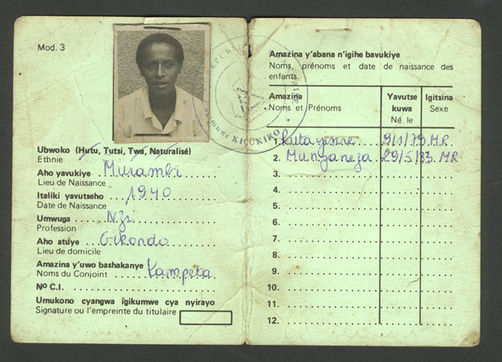 Mod. 3
KICUKIRO
Ubwoko (Hutu, Tutsi, Twa, Naturalisé)
Ethnie
Aho yavukiye Murambi
Lieu de Naissance
Italiki yavutseho 1940
Date de Naissance
Umwuga
Profession
Aho atuye Gikondo
Lieu de domicile
Amazina y'uwo bashakanye Kampeta
Noms du Conjoint
Nº C.I.
Umukono cyangwa igikumwe cya nyirayo
Signature ou l'empreinte du titulaire
Amazina y'abana n'igihe bavukiye
Noms, prénoms et date de naissance des
enfants
Amazina Yavutse Igitsina
Noms et Prénoms kuwa Sexe
Né le
1. Rutayisire 9/1/79 MR
2. Munyaneza 29/5/83 MR
3.
4.
5.
6.
7.
8.
9.
10.
11.
12.